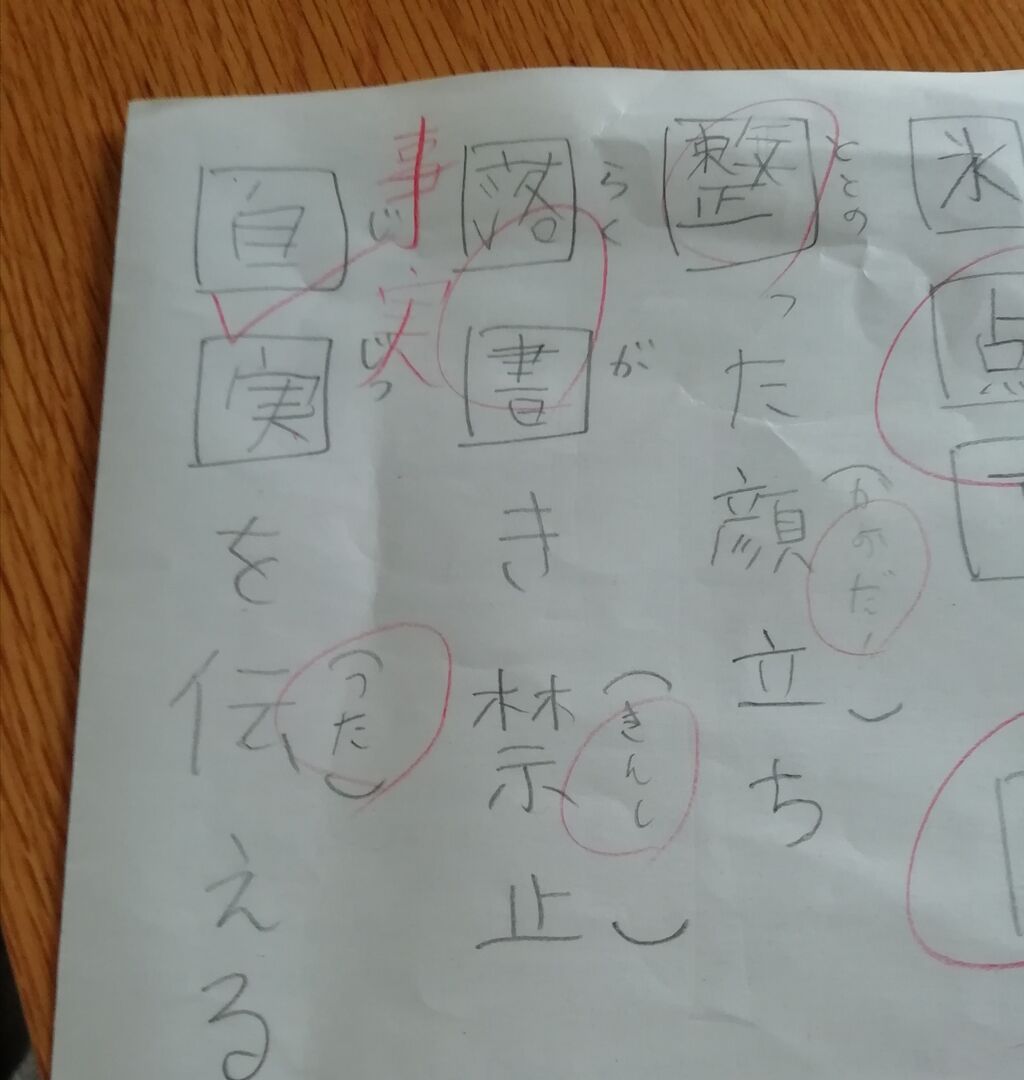 氷点
整った顔立ち
ととの
かおだ
落書き禁止
らくが
きんし
自実を伝える
じじつ
つた
事実